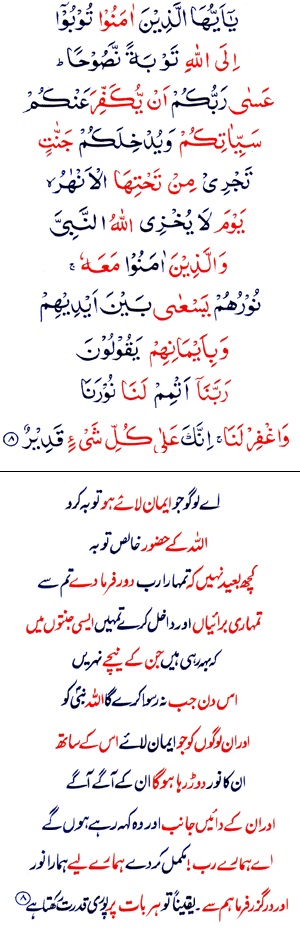 يٰۤاَيُّهَا الَّذِيْنَ اٰمَنُوْا تُوْبُوْۤا
اِلَى اللّٰهِ تَوْبَةً نَّصُوْحًا ؕ
عَسٰى رَبُّكُمْ اَنْ يُّكَفِّرَ عَنْكُمْ
سَيِّاٰتِكُمْ وَيُدْخِلَكُمْ جَنّٰتٍ
تَجْرِىْ مِنْ تَحْتِهَا الْاَنْهٰرُ ۙ
يَوْمَ لَا يُخْزِى اللّٰهُ النَّبِىَّ
وَالَّذِيْنَ اٰمَنُوْا مَعَهٗ ۚ
نُوْرُهُمْ يَسْعٰى بَيْنَ اَيْدِيْهِمْ
وَبِاَيْمَانِهِمْ يَقُوْلُوْنَ
رَبَّنَاۤ اَتْمِمْ لَنَا نُوْرَنَا
وَاغْفِرْ لَنَا ۚ اِنَّكَ عَلٰى كُلِّ شَىْءٍ قَدِيْرٌ ﴿۸﴾
اے لوگو جو ایمان لائے ہو توبہ کرو
اللہ کے حضور خالص توبہ
کچھ بعید نہیں کہ تمہارا رب دور فرما دے تم سے
تمہاری برائیاں اور داخل کرے تمہیں ایسی جنتوں میں
کہ بہہ رہی ہیں جن کے نیچے نہریں
اس دن جب نہ رسوا کرے گا اللہ نبیؐ کو
اور ان لوگوں کو جو ایمان لائے اس کے ساتھ
ان کا نور دوڑ رہا ہوگا ان کے آگے آگے
اور ان کے دائیں جانب اور وہ کہہ رہے ہوں گے
اے ہمارے رب! مکمل کر دے ہمارے لیے ہمارا نور
اور درگزر فرما ہم سے۔ یقیناً تو ہر بات پر پوری قدرت رکھتا ہے ﴿۸﴾